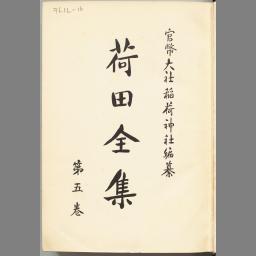 官幣大社稲荷神社編纂
荷田全集
第五巻